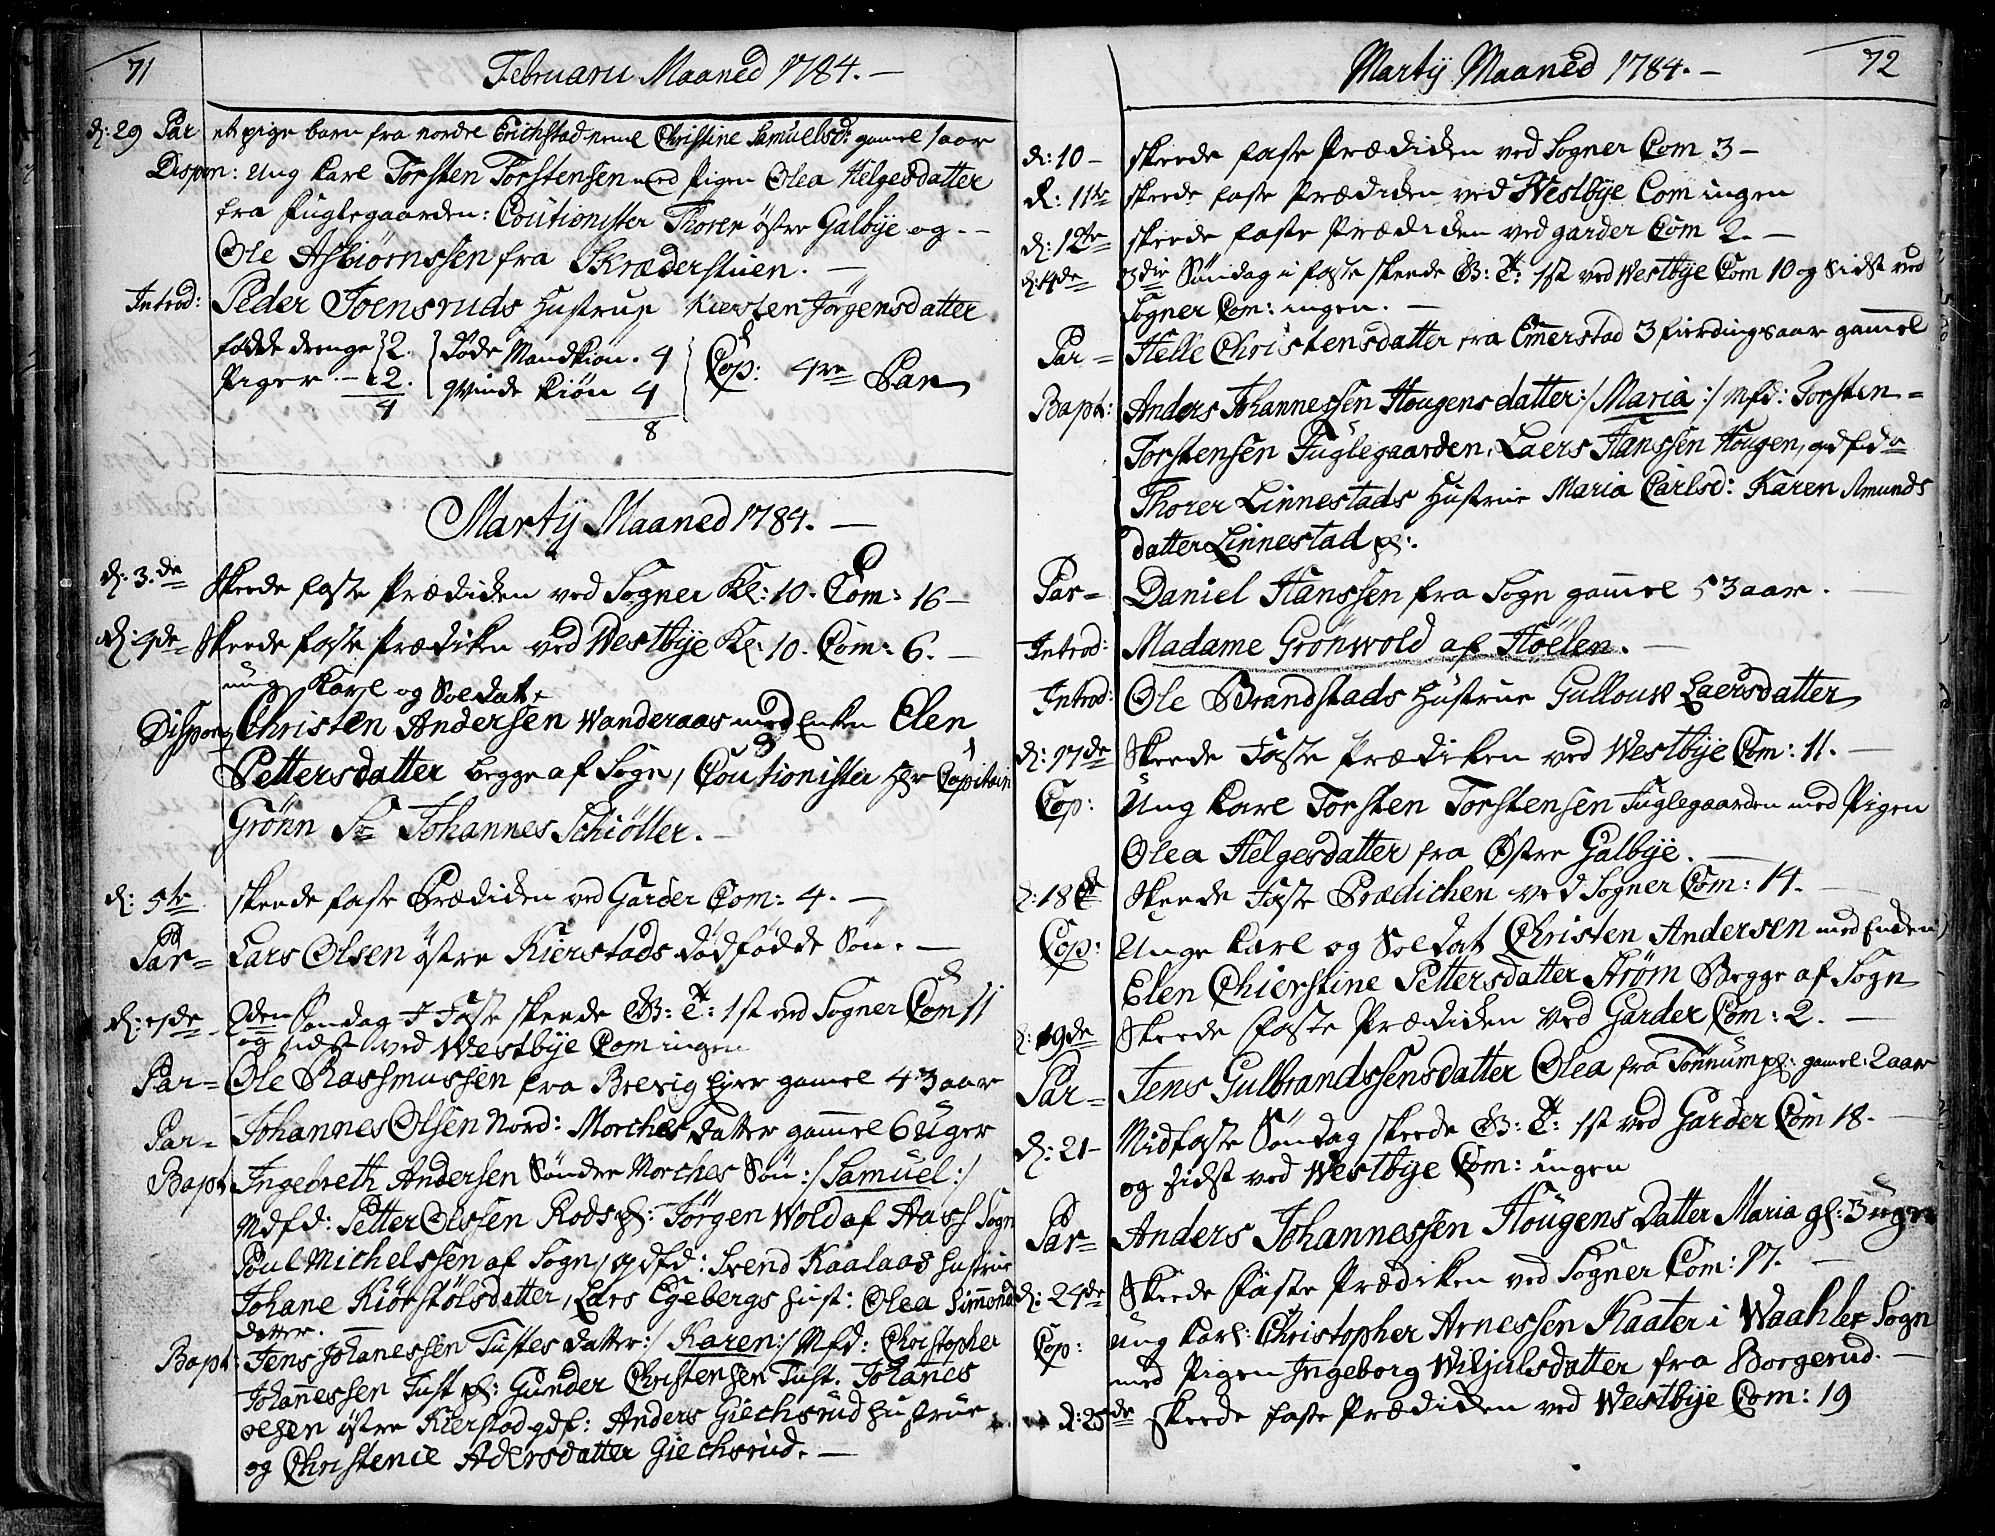 71
Februarii Maaned 1784. —
d: 29 Par et pige barn fra nordre Erichstad neml Christine Samuelsd: gamel 1 aar
Dispon: Ung Karl Torsten Torstensen med Pigen Olea Helgesdatter
fra Fuglegaarden: Coutionister Thorer östre Galbÿe og - -
Ole Asbiørnssen fra Skræderstuen. —
Introd: Peder Joensruds Hustrue Kiersten Jörgensdatter
födde drenge 2. Döde Mandkion. 4 Cop: 4re Par
Piger — 2. qvinde kiön 4
4
8
Martij Maaned 1784. —
d: 3.de Skeede faste Prædiken ved Sogner Kl: 10. Com: 16 —
d: 4de Skeede faste Prædiken ved Westbÿe Kl: 10. Com: 6. —
ung Karl og Soldat
Dispon Christen Andersen Wanderaas med Enken Elen
Pettersdatter begge af Sogn, Coutionister Hr Capitain
Grönn Sr Johannes Schiöller. —
d: 5te skeede faste Prædiken ved Garder Com: 4. —
Par= Lars Olsen östre Kierstads dödfödde Sön. —
d: 7de 2den Søndag I Faste skeede G: T: 1st ved Sogner Com 11
og sidst ved Westbÿe Com ingen
Par= Ole Rassmussen fra Brevig gamel 43 aar
Par= Johannes Olsen Nord: Morches datter gammel 6 Uger
Bapt Ingebreth Andersen Söndre Morches Sön :/ Samuel :/
Mdfd: Petter Olssen Rods pl: Jörgen Wold af Aass Sogn
Poul Michelssen af Sogn, qdfd: Svend Kaalaas Hustrue
Johane Kiörstölsdatter, Lars Egebergs Hust: Olea Simmonds
datter. —
Bapt: Jens Johanessen Tustes datter :/ Karen :/ Mfd: Christopher
Johannessen Tust pl: Gunder Christensen Tust. Johanes
olsen östre Kierstad qdf: Anders Giechsrud Hustrue
og Christence Adersdatter Giechsrud. —
72
Martij Maaned 1784. —
d: 10 — skeede faste Prædiken ved Sogner Com 3 —
d: 11te skeede faste Prædiken ved Westbÿe Com ingen
d: 12te skeede faste Prædiken ved garder Com 2. —
d: 14de 3die Söndag i faste skeede G: T: 1st ved Westbÿe Com 10 og sidst ved
Sogner Com: ingen. —
Par= Helle Christensdatter fra Emerstad 3 fierdingsaar gammel
Bapt: Anders Johannessen Hougens datter :/ Maria :/ Mfd: Torsten=
Torstensen Fuglegaarden, Laers Hanssen Hougen, qdfd=
Thorer Linnestads Hustrue Maria Carlsd: Karen Amunds
datter Linnestad pl:.
Par= Daniel Hanssen fra Sogn gammel 53 aar. —
Introd: Madame Grönwold af Höelen. —
Introd: Ole Brandstads Hustrue Gullouw Laersdatter
d: 17de Skeede Faste Prædiken ved Westbÿe Com: 11. —
Cop: Ung Karl Torsten Torstensen Fuglegaarden med Pigen
Olea Helgesdatter fra Østre Galbÿe. —
d: 18de Skeede Faste Prædichen ved Sogner Com: 14. —
Cop: Unge Karl og Soldat Christen Andersen med Enken
Elen Chierstine Pettersdatter Ström Begge af Sogn
d: 19de Skeede faste Prædiken ved Garder Com: 2. —
Par= Jens Gulbrandssensdatter Olea fra Tønnum pl: gamel: 2 aar
d: 21 — Midfaste Söndag skeede G: T: 1st ved Garder Com 18. —
og sidst ved Westbÿe Com: ingen
Par= Anders Johannessen Hougens Datter Maria gl: 3 uger
d: 24de Skeede Faste Prædiken ved Sogner Com: 17. —
Cop: Ung Karl: Christopher Arnessen Kaater i Waahler Sogn
med Pigen Ingeborg Wiljulsdatter fra Borgerud. —
d: 25de skeede faste Prædiken ved Westbÿe Com: 19